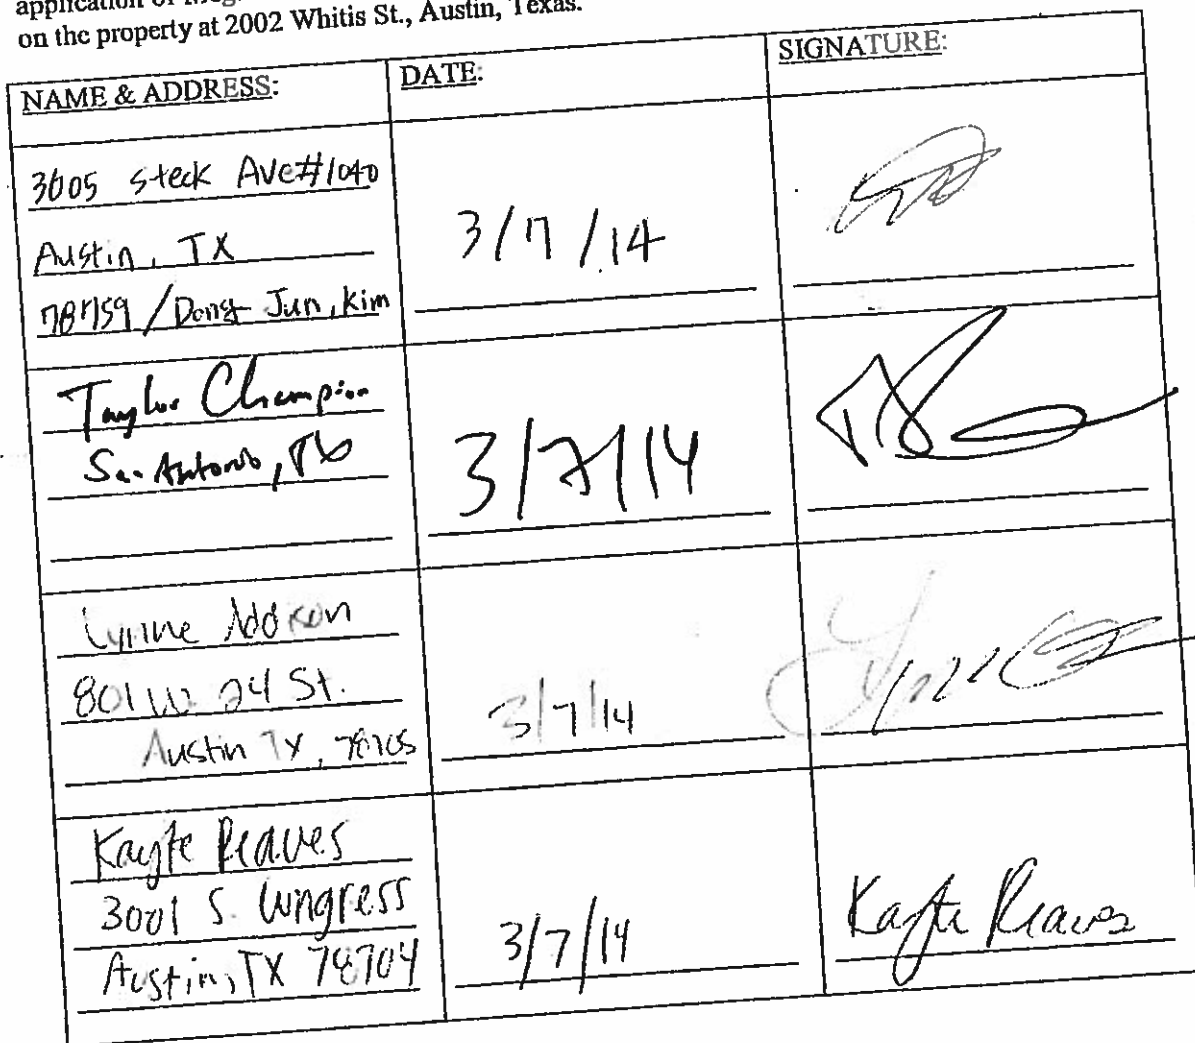 on the property at 2002 Whitis St., Austin, Texas.
NAME & ADDRESS:
DATE:
SIGNATURE:
3605 Steck Ave #1040
Austin, TX
78759 / Dong Jun, Kim
3/7/14
Taylor Champion
San Antonio, TX
3/7/14
Lynne Addison
801 W. 24 St.
Austin TX, 78705
3/7/14
Kayte Reaves
3001 S. Congress
Austin, TX 78704
3/7/14
Kayte Reaves